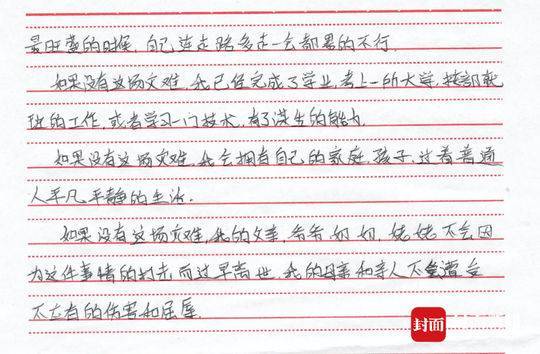 最旺盛的时候，自己连走路多走一会都累的不行．
如果没有这场灾难，我已经完成了学业，考上一所大学，找到
的工作，或者学习一门技术，有了谋生的能力．
如果没有这场灾难，我会拥有自己的家庭，孩子，过着普通
人平凡平静的生活．
如果没有这场灾难，我的父亲，爷爷，奶奶，姥姥不会因
为这件事情的打击而过早离世，我的母亲和亲人不会遭受
不应有的伤害和屈辱．
封面